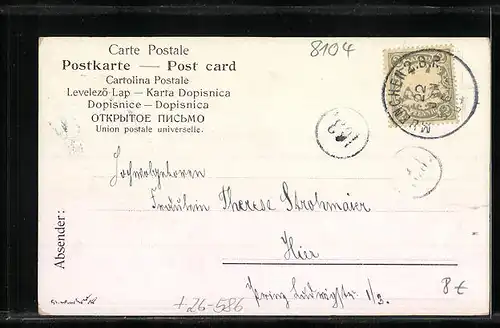 Carte Postale
8104
Postkarte — Post card
Cartolina Postale
Levelező-Lap — Karta Dopisnica
Dopisnice — Dopisnica
ОТКРЫТОЕ ПИСЬМО
Union postale universelle.
MUENCHEN 2.B.P.
22
Hochwolgeboren
Fräulein Therese Strohmaier
Hier
Prinz Ludwigstr. 1/3.
Absender:
+26-586
8€